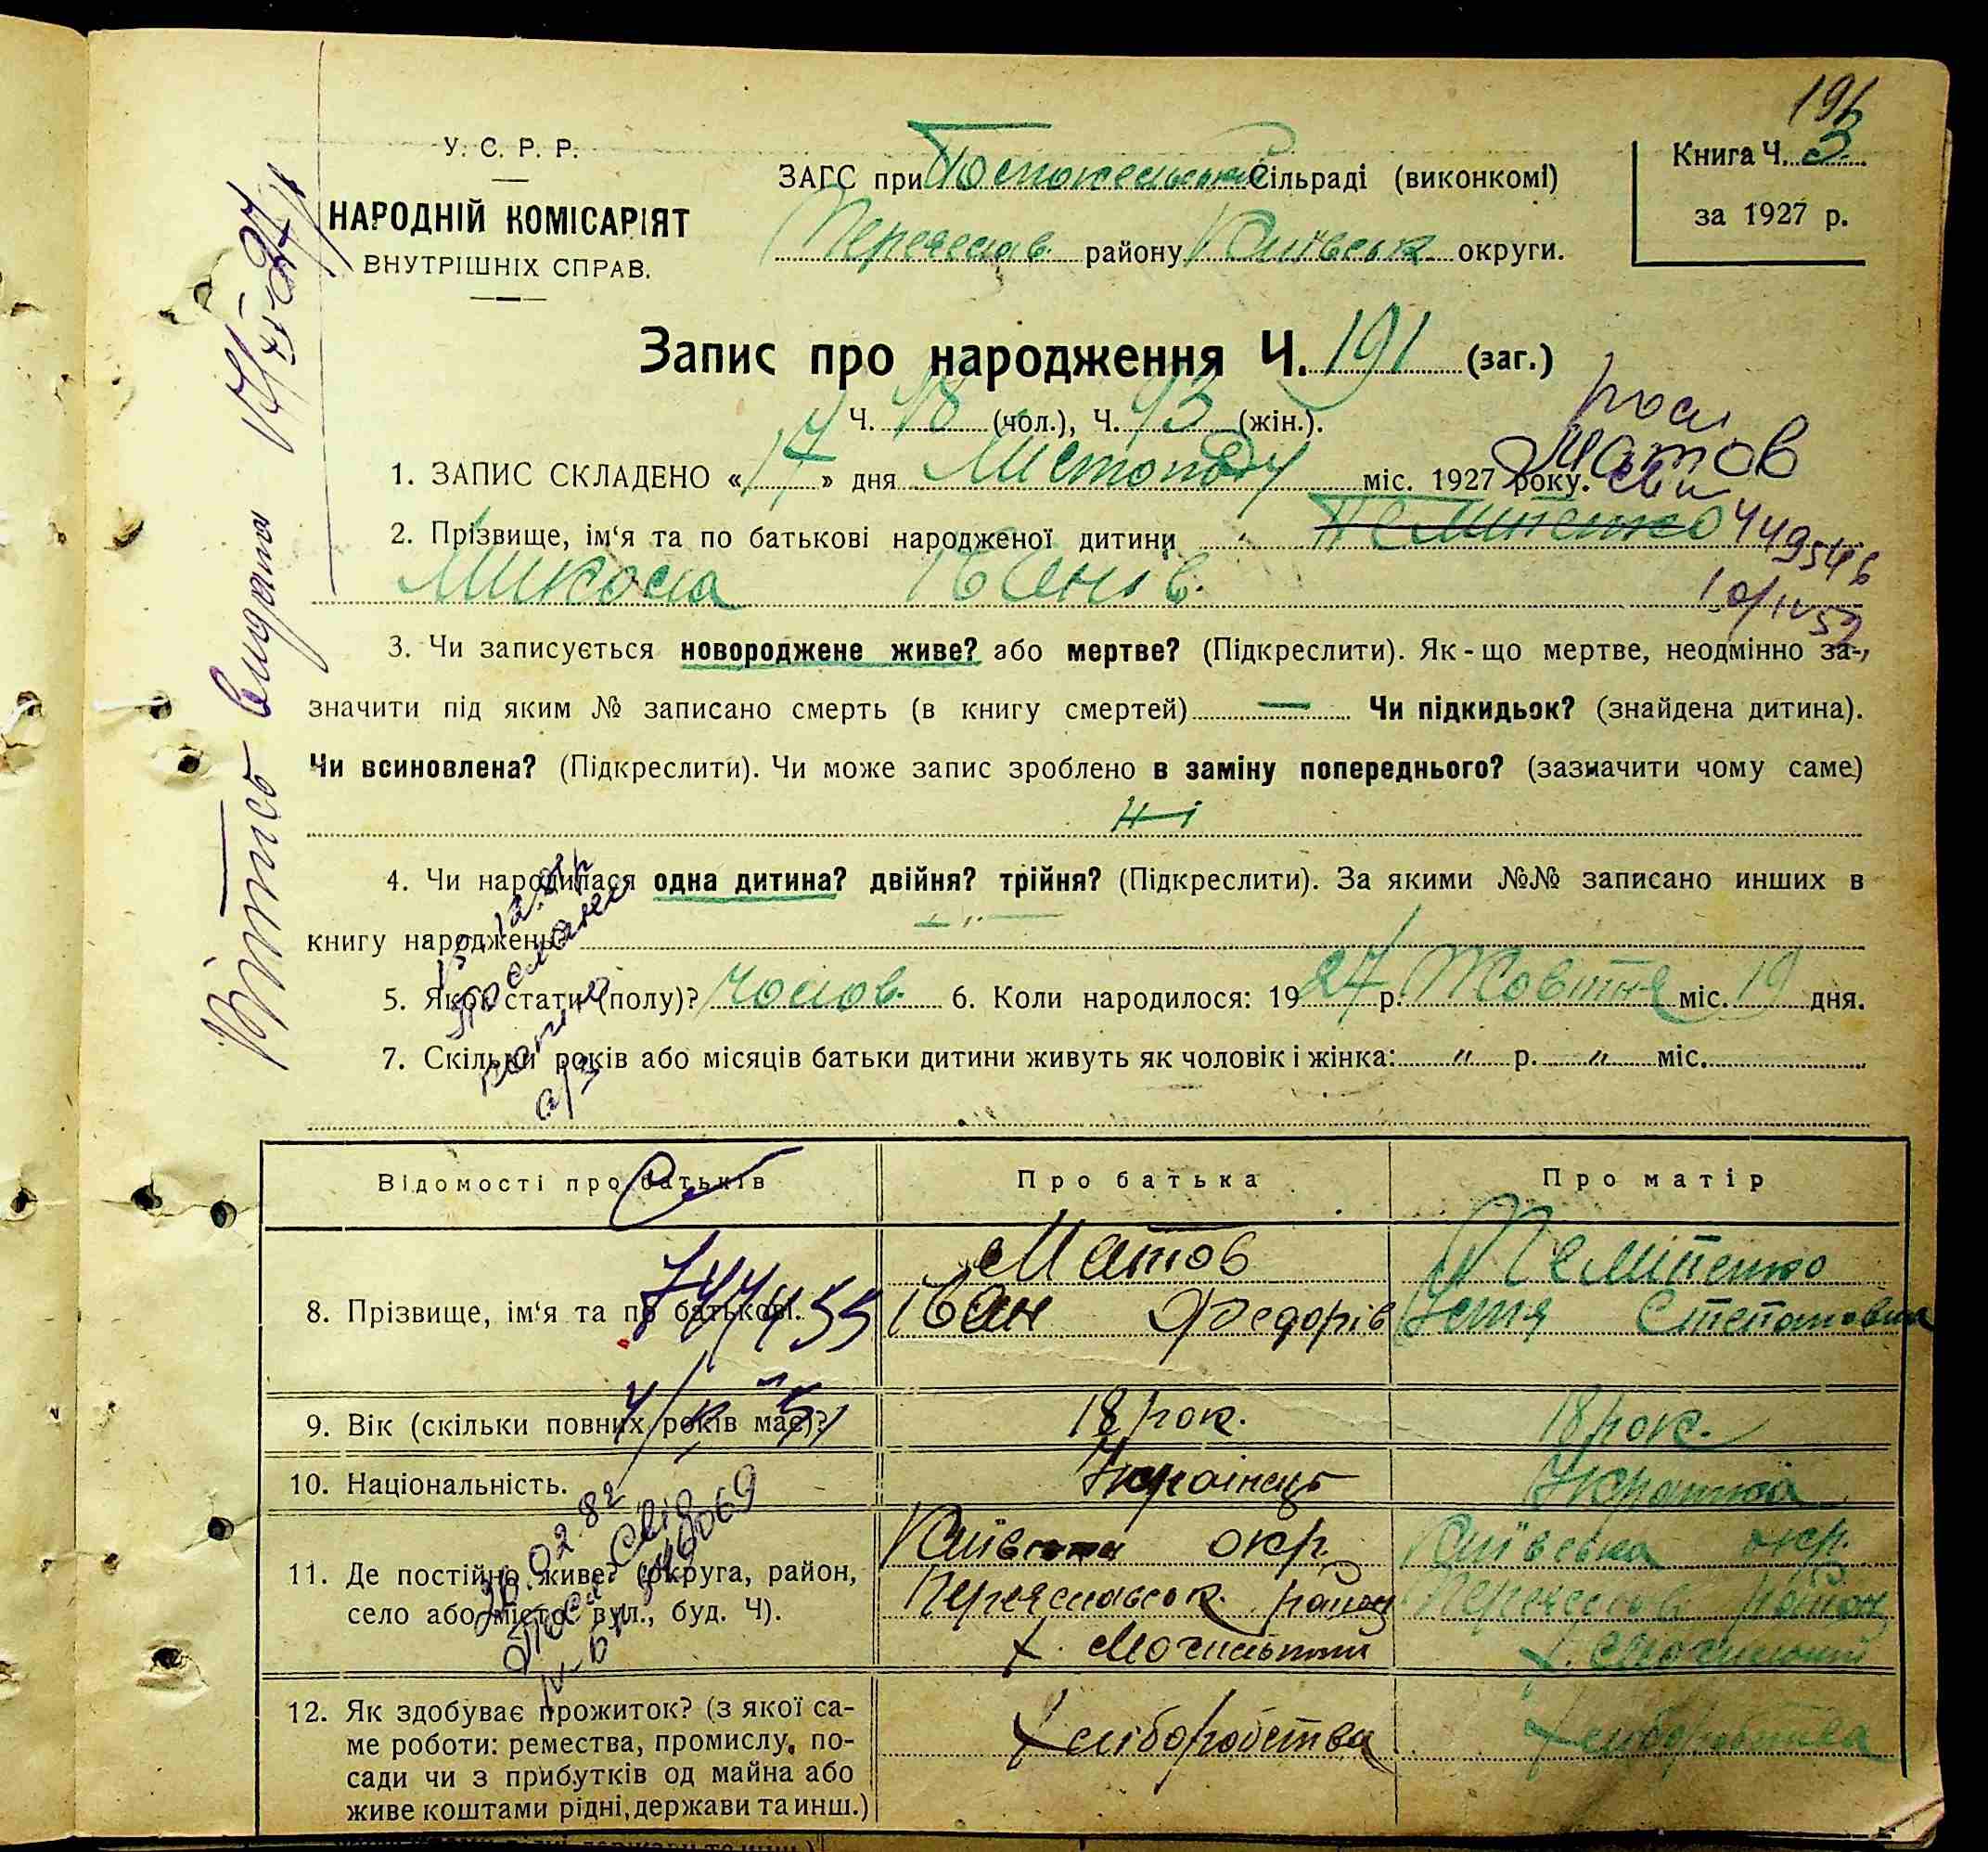 У. С. Р. Р.
НАРОДНІЙ КОМІСАРІЯТ
ВНУТРІШНІХ СПРАВ.
ЗАГС при Сільраді (виконкомі)
Переяслав району Київськ округи.
Книга Ч. 3
за 1927 р.
Запис про народження Ч. 191 (заг.)
Ч. 18 (чол.), Ч. 93 (жін.).
1. ЗАПИС СКЛАДЕНО «17» дня Листопаду міс. 1927 року.
Матов
2. Прізвище, ім‘я та по батькові народженої дитини Пемпенко
Микола Іванів.
3. Чи записується новороджене живе? або мертве? (Підкреслити). Як-що мертве, неодмінно за-
значити під яким № записано смерть (в книгу смертей) — Чи підкидьок? (знайдена дитина).
Чи всиновлена? (Підкреслити). Чи може запис зроблено в заміну попереднього? (зазначити чому саме)
Ні
4. Чи народилася одна дитина? двійня? трійня? (Підкреслити). За якими №№ записано инших в
книгу народжень?
5. Якої стати (полу)? чолов. 6. Коли народилося: 1927 р. Жовтня міс. 19 дня.
7. Скільки років або місяців батьки дитини живуть як чоловік і жінка: " р. " міс.
Відомості про батьків
Про батька
Про матір
8. Прізвище, ім‘я та по батькові.
Матов
Іван Федорів
Устя Степановна
744455
9. Вік (скільки повних років має)?
18 рок.
18 рок.
10. Національність.
Українець
Українка
11. Де постійно живе? (округа, район,
село або місто, вул., буд. Ч).
Київська окр.
Переяславськ. район
х.
Київська окр.
Переяслав район
х.
12. Як здобуває прожиток? (з якої са-
ме роботи: ремества, промислу, по-
сади чи з прибутків од майна або
живе коштами рідні, держави та инш.)
Хліборобства
Хліборобства
Витпсь видана